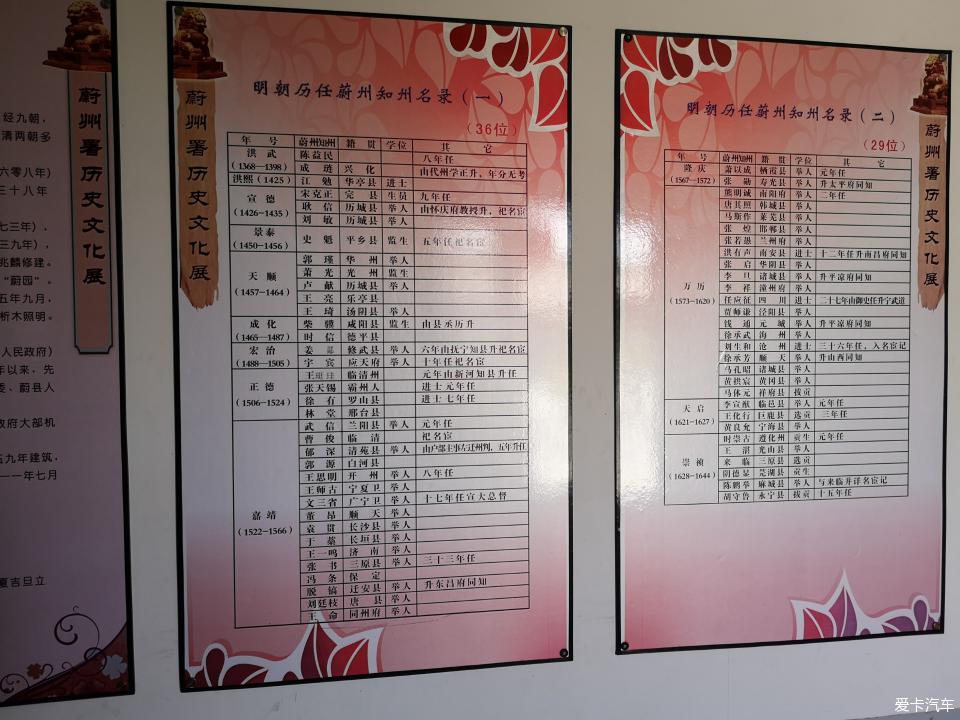 经九朝，
清两朝多
六零八年）
三十八年
七三年）、
三九年），
兆麟修建。
“蔚园”。
五年九月，
析木照明。
人民政府）
年以来，先
委、蔚县人
政府大部机
五九年建筑，
一一年七月
夏吉旦立
蔚州署历史文化展
蔚州署历史文化展
明朝历任蔚州知州名录（一）
（36位）
年 号 蔚州知州 籍 贯 学位 其 它
洪 武 陈益民 八年任
（1368—1398） 成 琏 兴 化 由代州学正升，年分无考
洪熙（1425） 江 勉 华亭县 进士
宣 德 宋克正 完 县 生员 九年任
（1426—1435） 耿 信 历城县 举人 由怀庆府教授升，祀名宦
刘 敏 历城县 举人
景泰（1450—1456） 史 魁 平乡县 监生 五年任祀名宦
天 顺 郭 瑾 华 州 举人
（1457—1464） 萧 光 光 州 监生
卢 献 历城县 举人
王 亮 乐亭县
王 琦 汤阴县 举人
成 化 柴 骥 咸阳县 监生 由县丞历升
（1465—1487） 时 信 德平县
宏 治 姜 修武县 举人 六年由抚宁知县升祀名宦
（1488—1505） 宇 宾 应天府 举人 十年任祀名宦
正 德 王 临清州 元年由新河知县升任
（1506—1524） 张天锡 霸州人 进士元年任
徐 有 罗山县 进士七年任
林 堂 邢台县
嘉 靖 武 信 兰阳县 举人 元年任
（1522—1566） 曹 俊 临 清 祀名宦
郁 深 清苑县 举人 由户部主事左迁州判，五年升任
郭 源 白河县
王思明 开 州 举人 八年任
王师古 宁夏卫 举人
文三省 广宁卫 举人 十七年任宣大总督
董 昂 顺 天 举人
袁 贯 长沙县 举人
于 蓁 长垣县 举人
王一鸣 济 南 举人
张 书 三原县 举人 三十三年任
冯 条 保 定
脱 镐 迁安县 举人 升东昌府同知
刘廷枝 唐 县 举人
王 命 同州府 举人
明朝历任蔚州知州名录（二）
（29位）
年 号 蔚州知州 籍 贯 学位 其 它
隆 庆 萧以成 栖霞县 举人 元年任
（1567—1572） 张 勋 寿光县 举人 升太平府同知
万 历 熊明诚 南阳府 举人 三年任
（1573—1620） 唐其照 韩城县 举人
马斯作 莱芜县 举人
张 煌 邯郸县 举人
张若愚 兰州府 举人
洪有声 南安县 进士 十二年任升南昌府同知
张 启 华阴县 举人
李 旦 诸城县 举人 升平凉府同知
李 祥 潼州府 举人
任应征 四 川 进士 二十七年由御史任升宇武道
贾师谦 泾阳县 举人
钱 通 元 城 举人 升平凉府同知
徐承武 海 州 举人
刘生和 沧 州 进士 三十六年任，入名宦记
徐承芳 顺 天 举人 升山西同知
马孔昭 诸城县 举人
黄拱宸 黄冈县 举人
马休元 祥府县 拔贡
天 启 李宣猷 临邑县 举人 元年任
（1621—1627） 王化行 巨鹿县 选贡 三年任
黄良允 宁海县 举人
崇 祯 时崇古 遵化州 贡生 元年任
（1628—1644） 王 湛 光山县 举人
来 临 三原县 选贡
阴德显 芜湖县 贡生
陈鹏举 麻城县 举人 与来临并详名宦记
胡守鲁 永宁县 拔贡 十五年任
蔚州署历史文化展
爱卡汽车